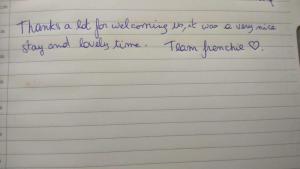 Thanks a lot for welcoming us, it was a very nice
stay and lovely time. Team frenchie ♡.